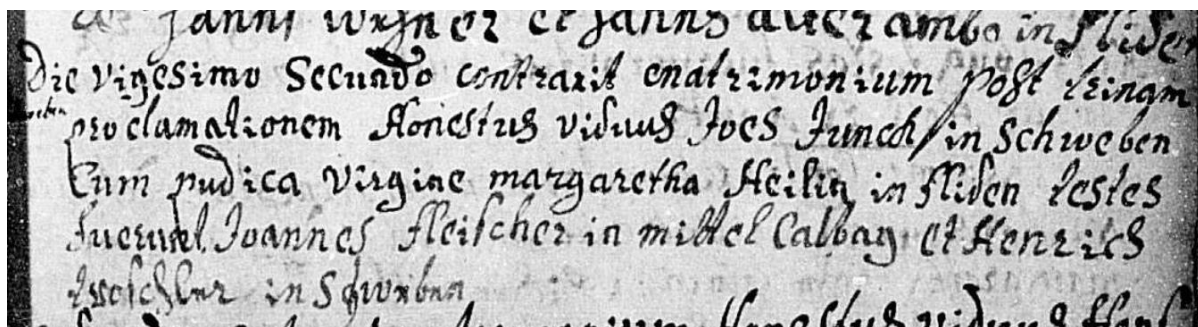 Janns Wegner et Janns auf er ambo in Fliden
Die vigesimo Secundo contraxit matrimonium post trinam
proclamationem Honestus viduus Joes Junck in Schweben
Cum pudica virgine margaretha Heilin in fliden testes
fuerunt Joannes fleischer in mittel Calbag et Henrich
in Schweben
Honestus viduus